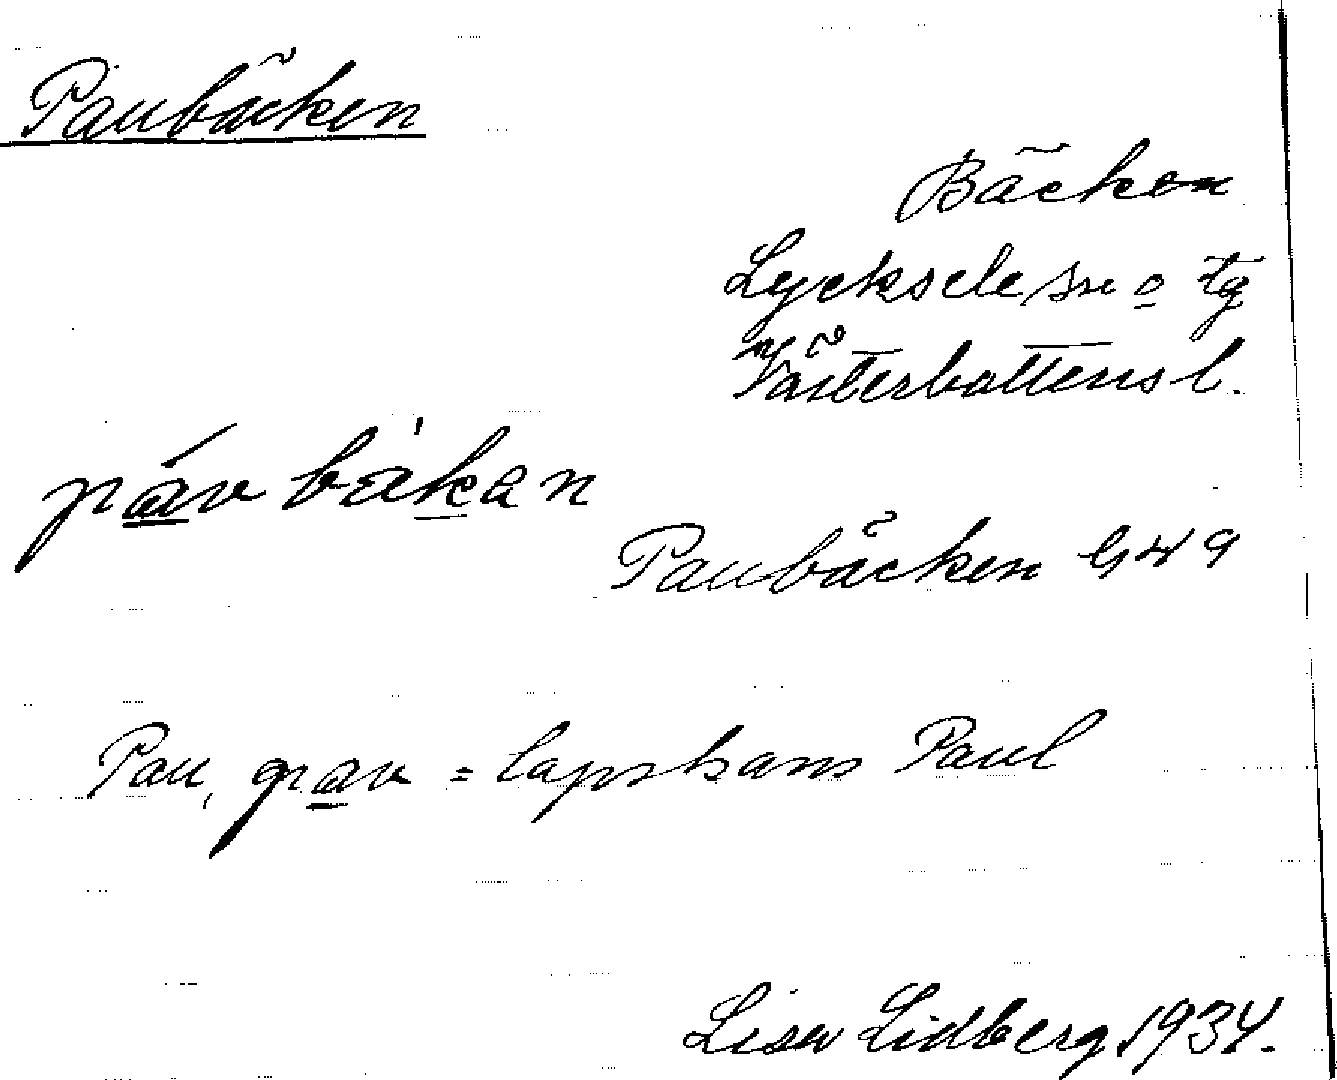 Paubäcken
Bäcken
Lycksele sn o tg
Västerbottens l.
páv bäkan
Paubäcken G49
Pau, pav = lapskans Paul
Lisa Lidberg 1934.